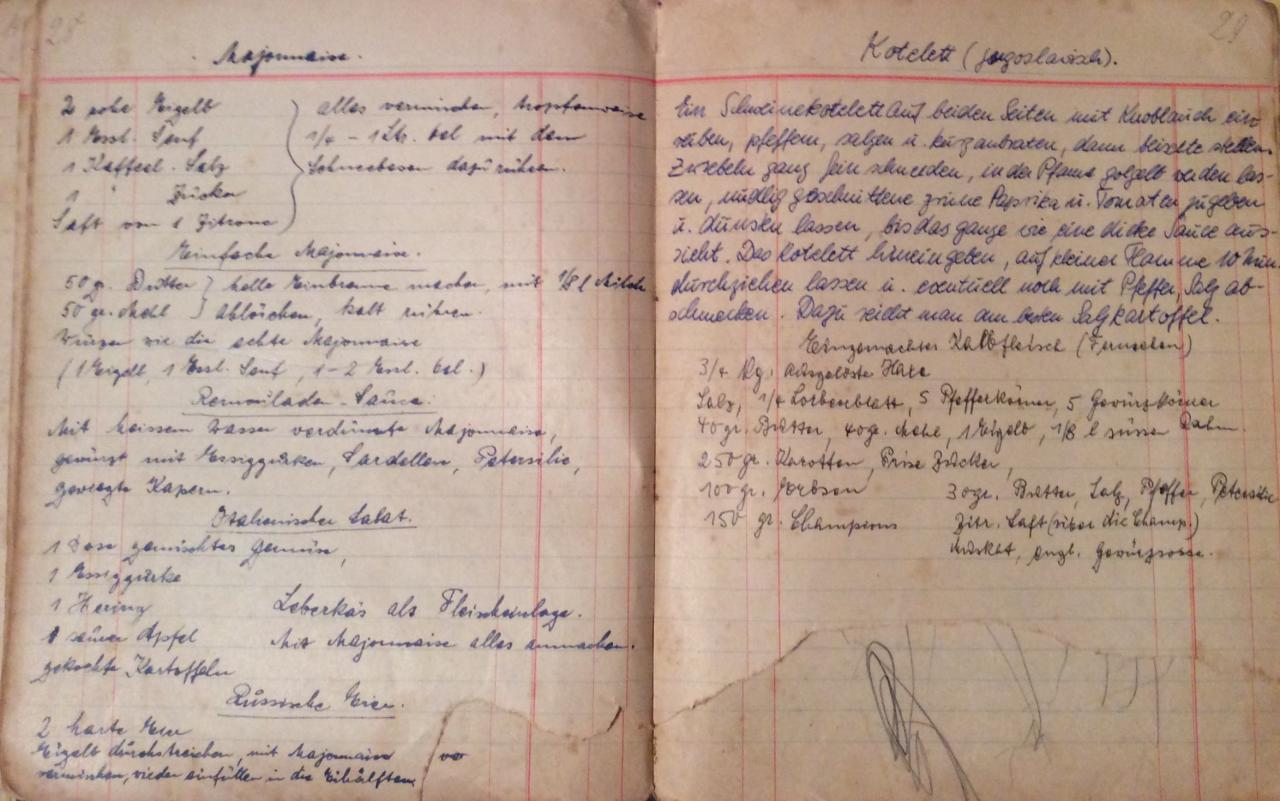 28
Majonnaise.
2 rohe Eigelb
1 Essl. Senf
1 Kaffeel. Salz
1 " Zucker
Saft von 1 Zitrone
alles vermischen, tropfenweise
1/4 - 1 Ltr. Oel mit dem
Schneebesen dazurühren.
Einfache Majonnaise.
50 gr. Butter } helle Einbrenne machen, mit 1/8 l Milch
50 gr. Mehl } ablöschen, kalt rühren.
Würzen wie die echte Majonnaise
(1 Eigelb, 1 Essl. Senf, 1-2 Essl. Oel.)
Remouladen-Sauce.
Mit heissem Wasser verdünnte Majonnaise,
gewürzt mit Essiggurken, Sardellen, Petersilie,
gewiegte Kapern.
Italienischer Salat.
1 Dose gemischtes Gemüse,
1 Essiggurke
1 Hering Leberkäs als Fleischeinlage.
1 saurer Apfel Mit Majonnaise alles anmachen.
gekochte Kartoffeln
Russische Eier.
2 harte Eier
Eigelb durchstreichen, mit Majonnaise
vermischen, wieder einfüllen in die Eihälften
29
Kotelett (jugoslawisch).
Ein Schweinekotelett auf beiden Seiten mit Knoblauch ein-
reiben, pfeffern, salzen u. kurz anbraten, dann beiseite stellen.
Zwiebeln ganz fein schneiden, in der Pfanne goldgelb werden las-
sen, nudlig geschnittene grüne Paprika u. Tomaten zugeben
u. dünsten lassen, bis das ganze wie eine dicke Sauce aus-
sieht. Das Kotelett hineingeben, auf kleiner Flamme 10 Min.
durchziehen lassen u. eventuell noch mit Pfeffer, Salz ab-
schmecken. Dazu reicht man am besten Salzkartoffel.
Eingemachtes Kalbfleisch (Fernsehen)
3/4 Kg. ausgelöste Haxe
Salz, 1/4 Lorbeerblatt, 5 Pfefferkörner, 5 Gewürzkörner
40 gr. Butter, 40 gr. Mehl, 1 Eigelb, 1/8 l süssen Rahm.
250 gr. Karotten, Prise Zucker,
100 gr. Erbsen 30 gr. Butter, Salz, Pfeffer, Petersilie
150 gr. Champions Zitr. Saft (über die Champ.)
Muskat, engl. Gewürzsosse.